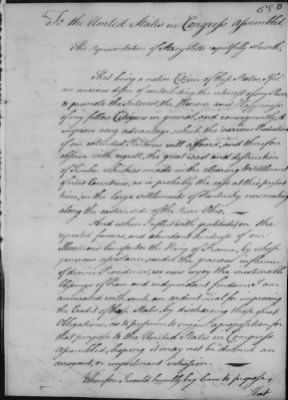 To the United States in Congress assembled
The representation of Mary respectfully sheweth,
That being a native Citizen of these States, 
an anxious desire of contributing the utmost of my Power
to promote the Interest, the Honour and Happiness
of my fellow Citizens in general, and consequently to
improve every advantage, which the various 
of our extended Territory will afford, and therefore
with regret, the great waste and destruction
of Timber which is made in the clearing & settlement
of new Countries, as is probably the case at this present
time, in the large settlements of Kentucky now making
along the eastern side of the river Ohio.
And when I reflect with gratitude on the
repeated favours and abundant kindness of our
illustrious benefactor the King of France, by whose
generous assistance, under the gracious influence
of divine Providence, we now enjoy the inestimable
blessings of Peace and independant freedom I am
animated with such an ardent zeal for improving
the Credit of these States, by discharging these great
Obligations, as to presume to suggest a proposition for
that purpose to the United States in Congress
assembled, hoping it may not be deemed an
arrogant, or impertinent intrusion.
Wherefore I would humbly beg leave to propose,
That